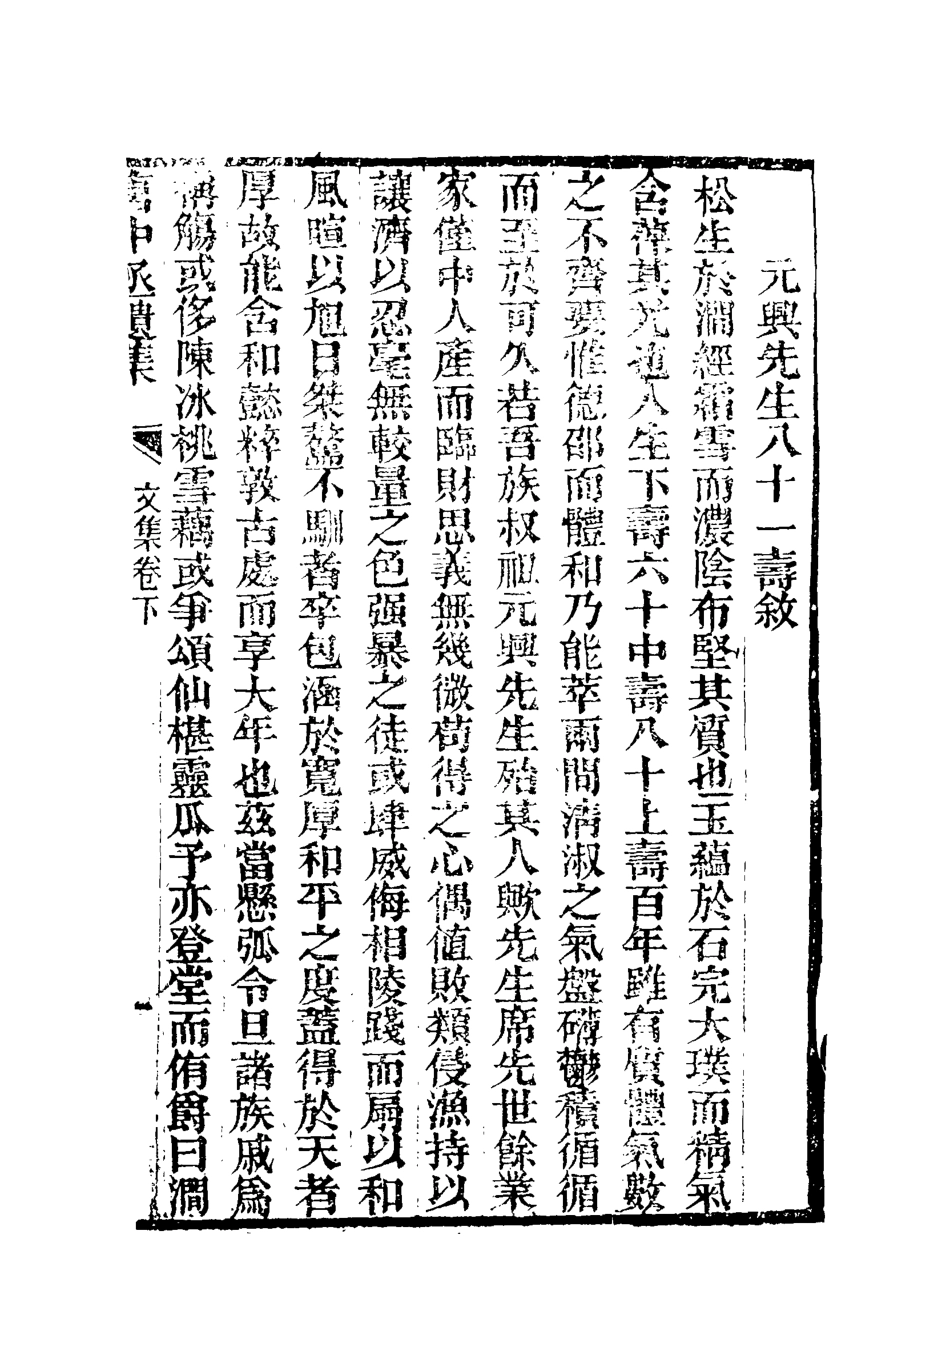 元興先生八十一壽敘
松生於澗經霜雪而濃陰布堅其質也玉蘊於石完大璞而精氣
含葆其光也人生下壽六十中壽八十上壽百年雖有質體氣數
之不齊要惟德邵而體和乃能萃兩間淸淑之氣盤礴鬱積循循
而至於可久若吾族叔祖元興先生殆其人歟先生席先世餘業
家僅中人產而臨財思義無幾微苟得之心偶値敗類侵漁持以
讓濟以忍毫無較量之色强暴之徒或肆威侮相陵踐而扇以和
風暄以旭日桀驁不馴者卒包涵於寬厚和平之度蓋得於天者
厚故能含和懿粹敦古處而享大年也茲當懸弧令旦諸族戚爲
稱觴或侈陳冰桃雪藕或爭頌仙椹靈瓜予亦登堂而侑爵曰澗
中丞遺集 文集卷下 一